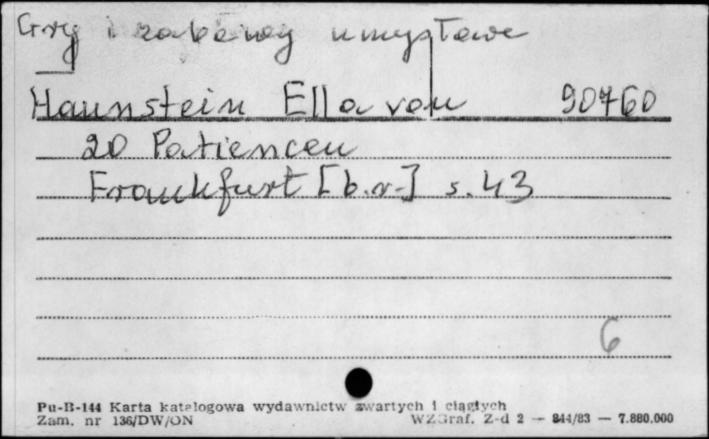 Gry i zabawy umysłowe
Haunstein Ella von 90760
20 Patiencen
Frankfurt [b.r.] s. 43
6
Pu-B-144 Karta katalogowa wydawnictw zwartych i ciągłych
Zam. nr 136/DW/ON WZGraf. Z-d 2 — 844/83 — 7.880.000